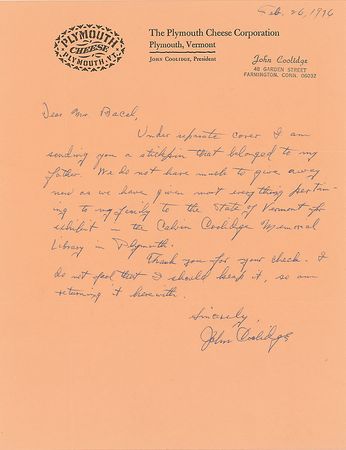 Feb. 26, 1976
PLYMOUTH
CHEESE
PLYMOUTH, VT.
The Plymouth Cheese Corporation
Plymouth, Vermont
JOHN COOLIDGE, President
John Coolidge
48 GARDEN STREET
FARMINGTON, CONN. 06032
Dear Mr. Bacal,
Under separate cover I am
sending you a stickpin that belonged to my
father. We do not have much to give away
now as we have given most everything pertain-
ing to my family to the State of Vermont for
exhibit in the Calvin Coolidge Memorial
Library in Plymouth.
Thank you for your check. I
do not feel that I should keep it, so am
returning it herewith.
Sincerely,
John Coolidge